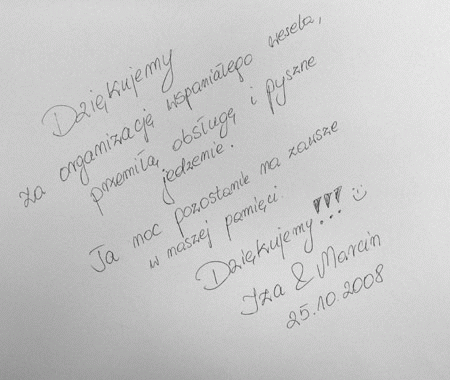 Dziękujemy
za organizację wspaniałego wesela,
przemiłą obsługę i pyszne
jedzenie.
Ta noc pozostanie na zawsze
w naszej pamięci.
Dziękujemy!!! :)
Iza & Marcin
25.10.2008